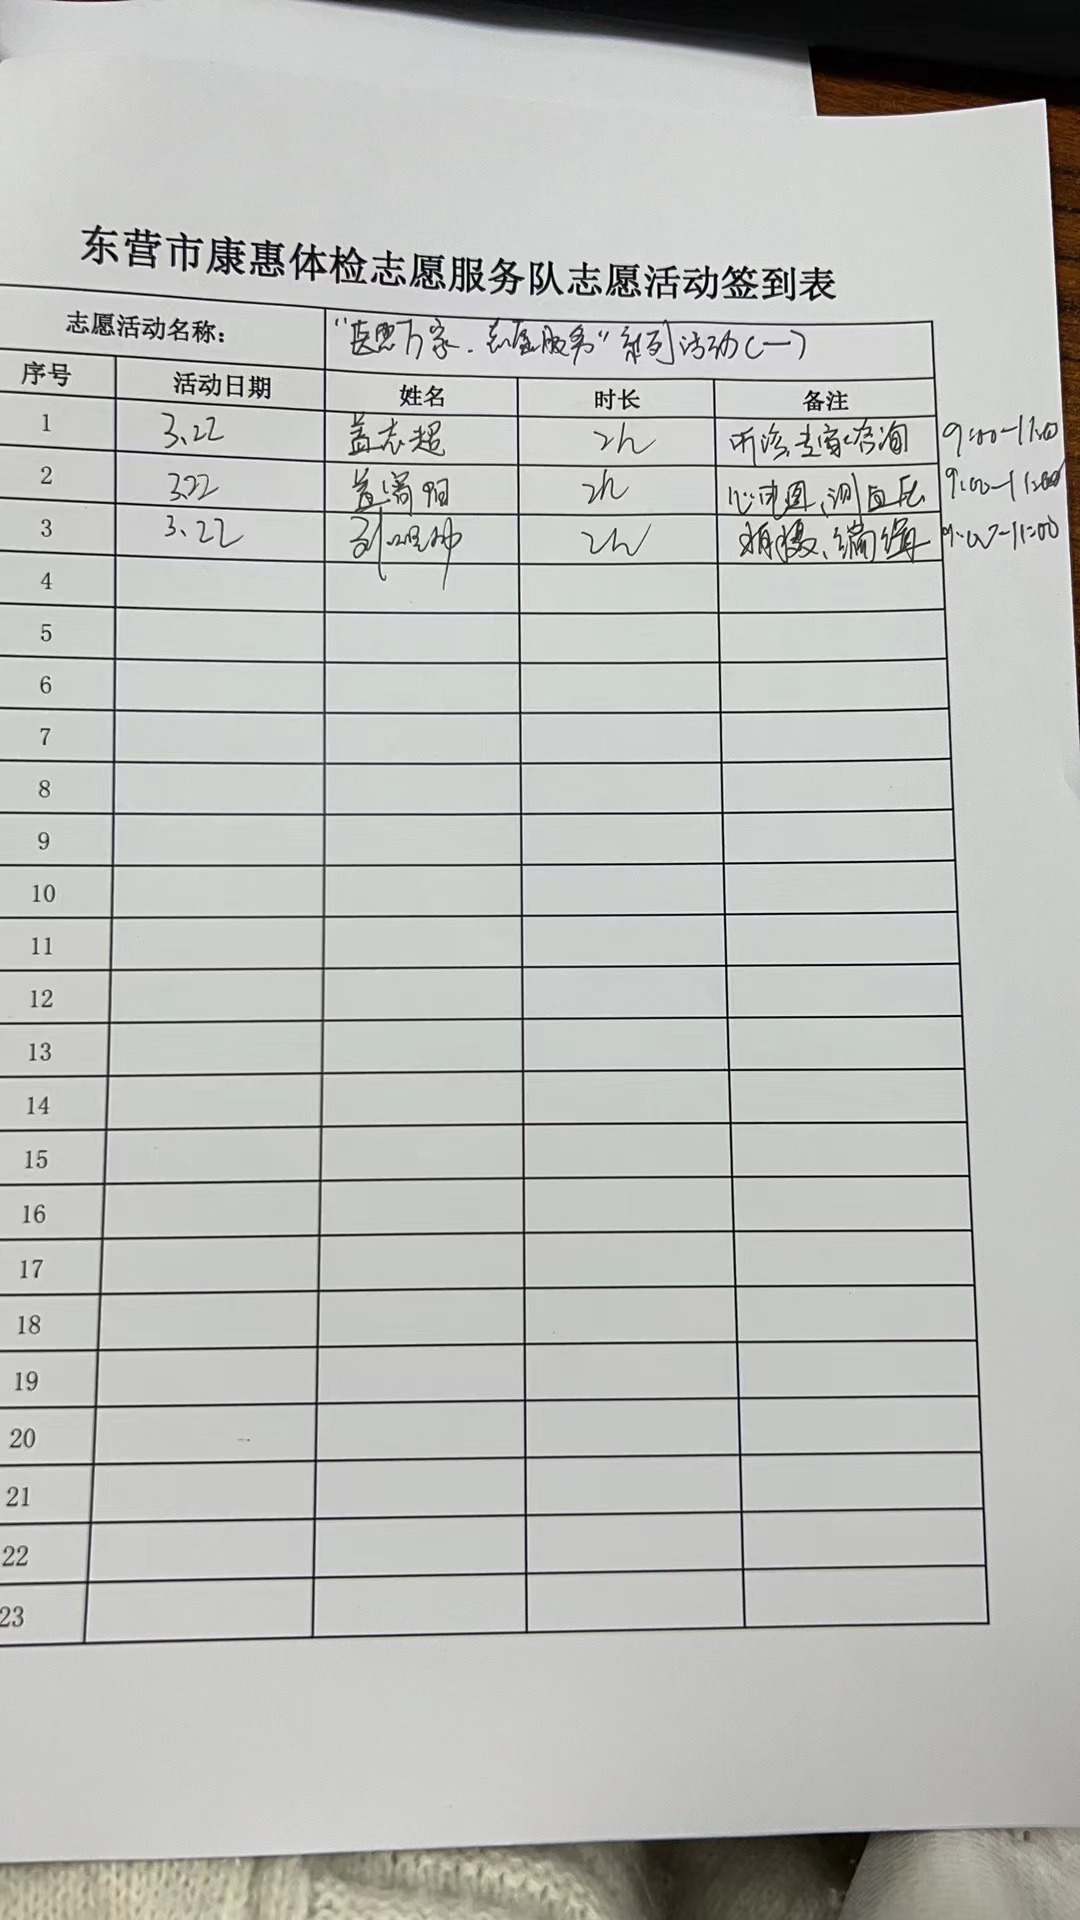 东营市康惠体检志愿服务队志愿活动签到表
志愿活动名称： “医惠万家·志愿服务”系列活动(一)
序号 活动日期 姓名 时长 备注
1 3.22 盖志超 2h 听诊、专家咨询 9:00-11:00
2 3.22 2h 心电图、测血压 9:00-11:00
3 3.22 2h 拍摄、编辑 9:00-11:00
4
5
6
7
8
9
10
11
12
13
14
15
16
17
18
19
20
21
22
23